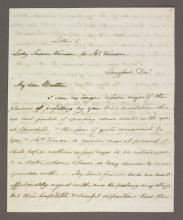 Letter 1.
Lady Susan Vernon to Mr Vernon.
Langford, Decr
My dear Brother
I can no longer refuse myself the
pleasure of profiting by your kind invitation when
we last parted of spending some weeks with you
at Churchill, & therefore if quite convenient to
you & Mrs Vernon to receive me at present, I
shall hope within a few days to be introduced
to a Sister whom I have so long desired to be ac-
quainted with. My kind friends here are most
affectionately urgent with me to prolong my stay,
but their hospitable & chearful dispositions lead them